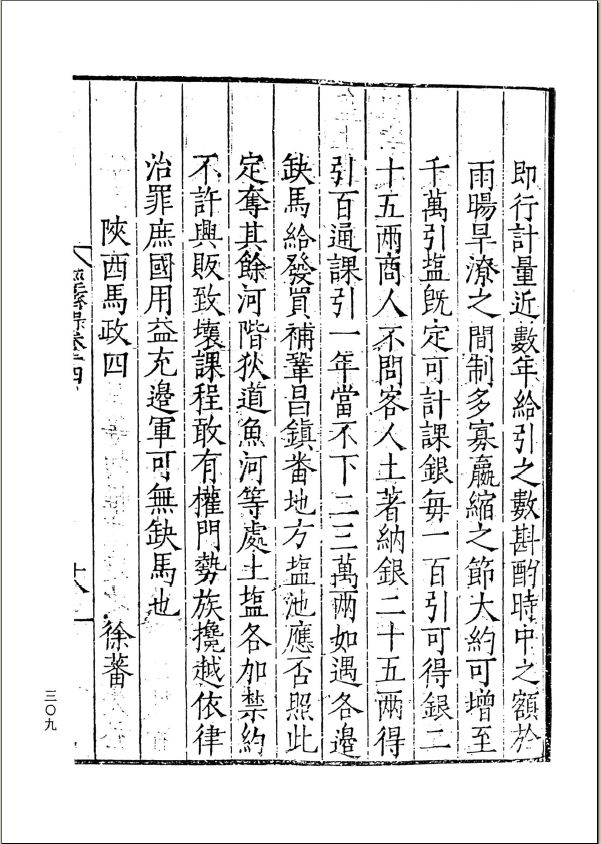 即行計量近數年給引之數斟酌時中之額於
雨暘旱潦之間制多寡贏縮之節大約可增至
千萬引塩旣定可計課銀每一百引可得銀二
十五兩商人不問客人土著納銀二十五兩得
引百通課引一年當不下二三萬兩如遇各邊
缺馬給發買補鞏昌鎮畨地方塩池應否照此
定奪其餘河階狄道魚河等處土塩各加禁約
不許興販致壞課程敢有權門勢族攙越依律
治罪庶國用益充邊軍可無缺馬也
陝西馬政四
徐蕃
十八
三〇九